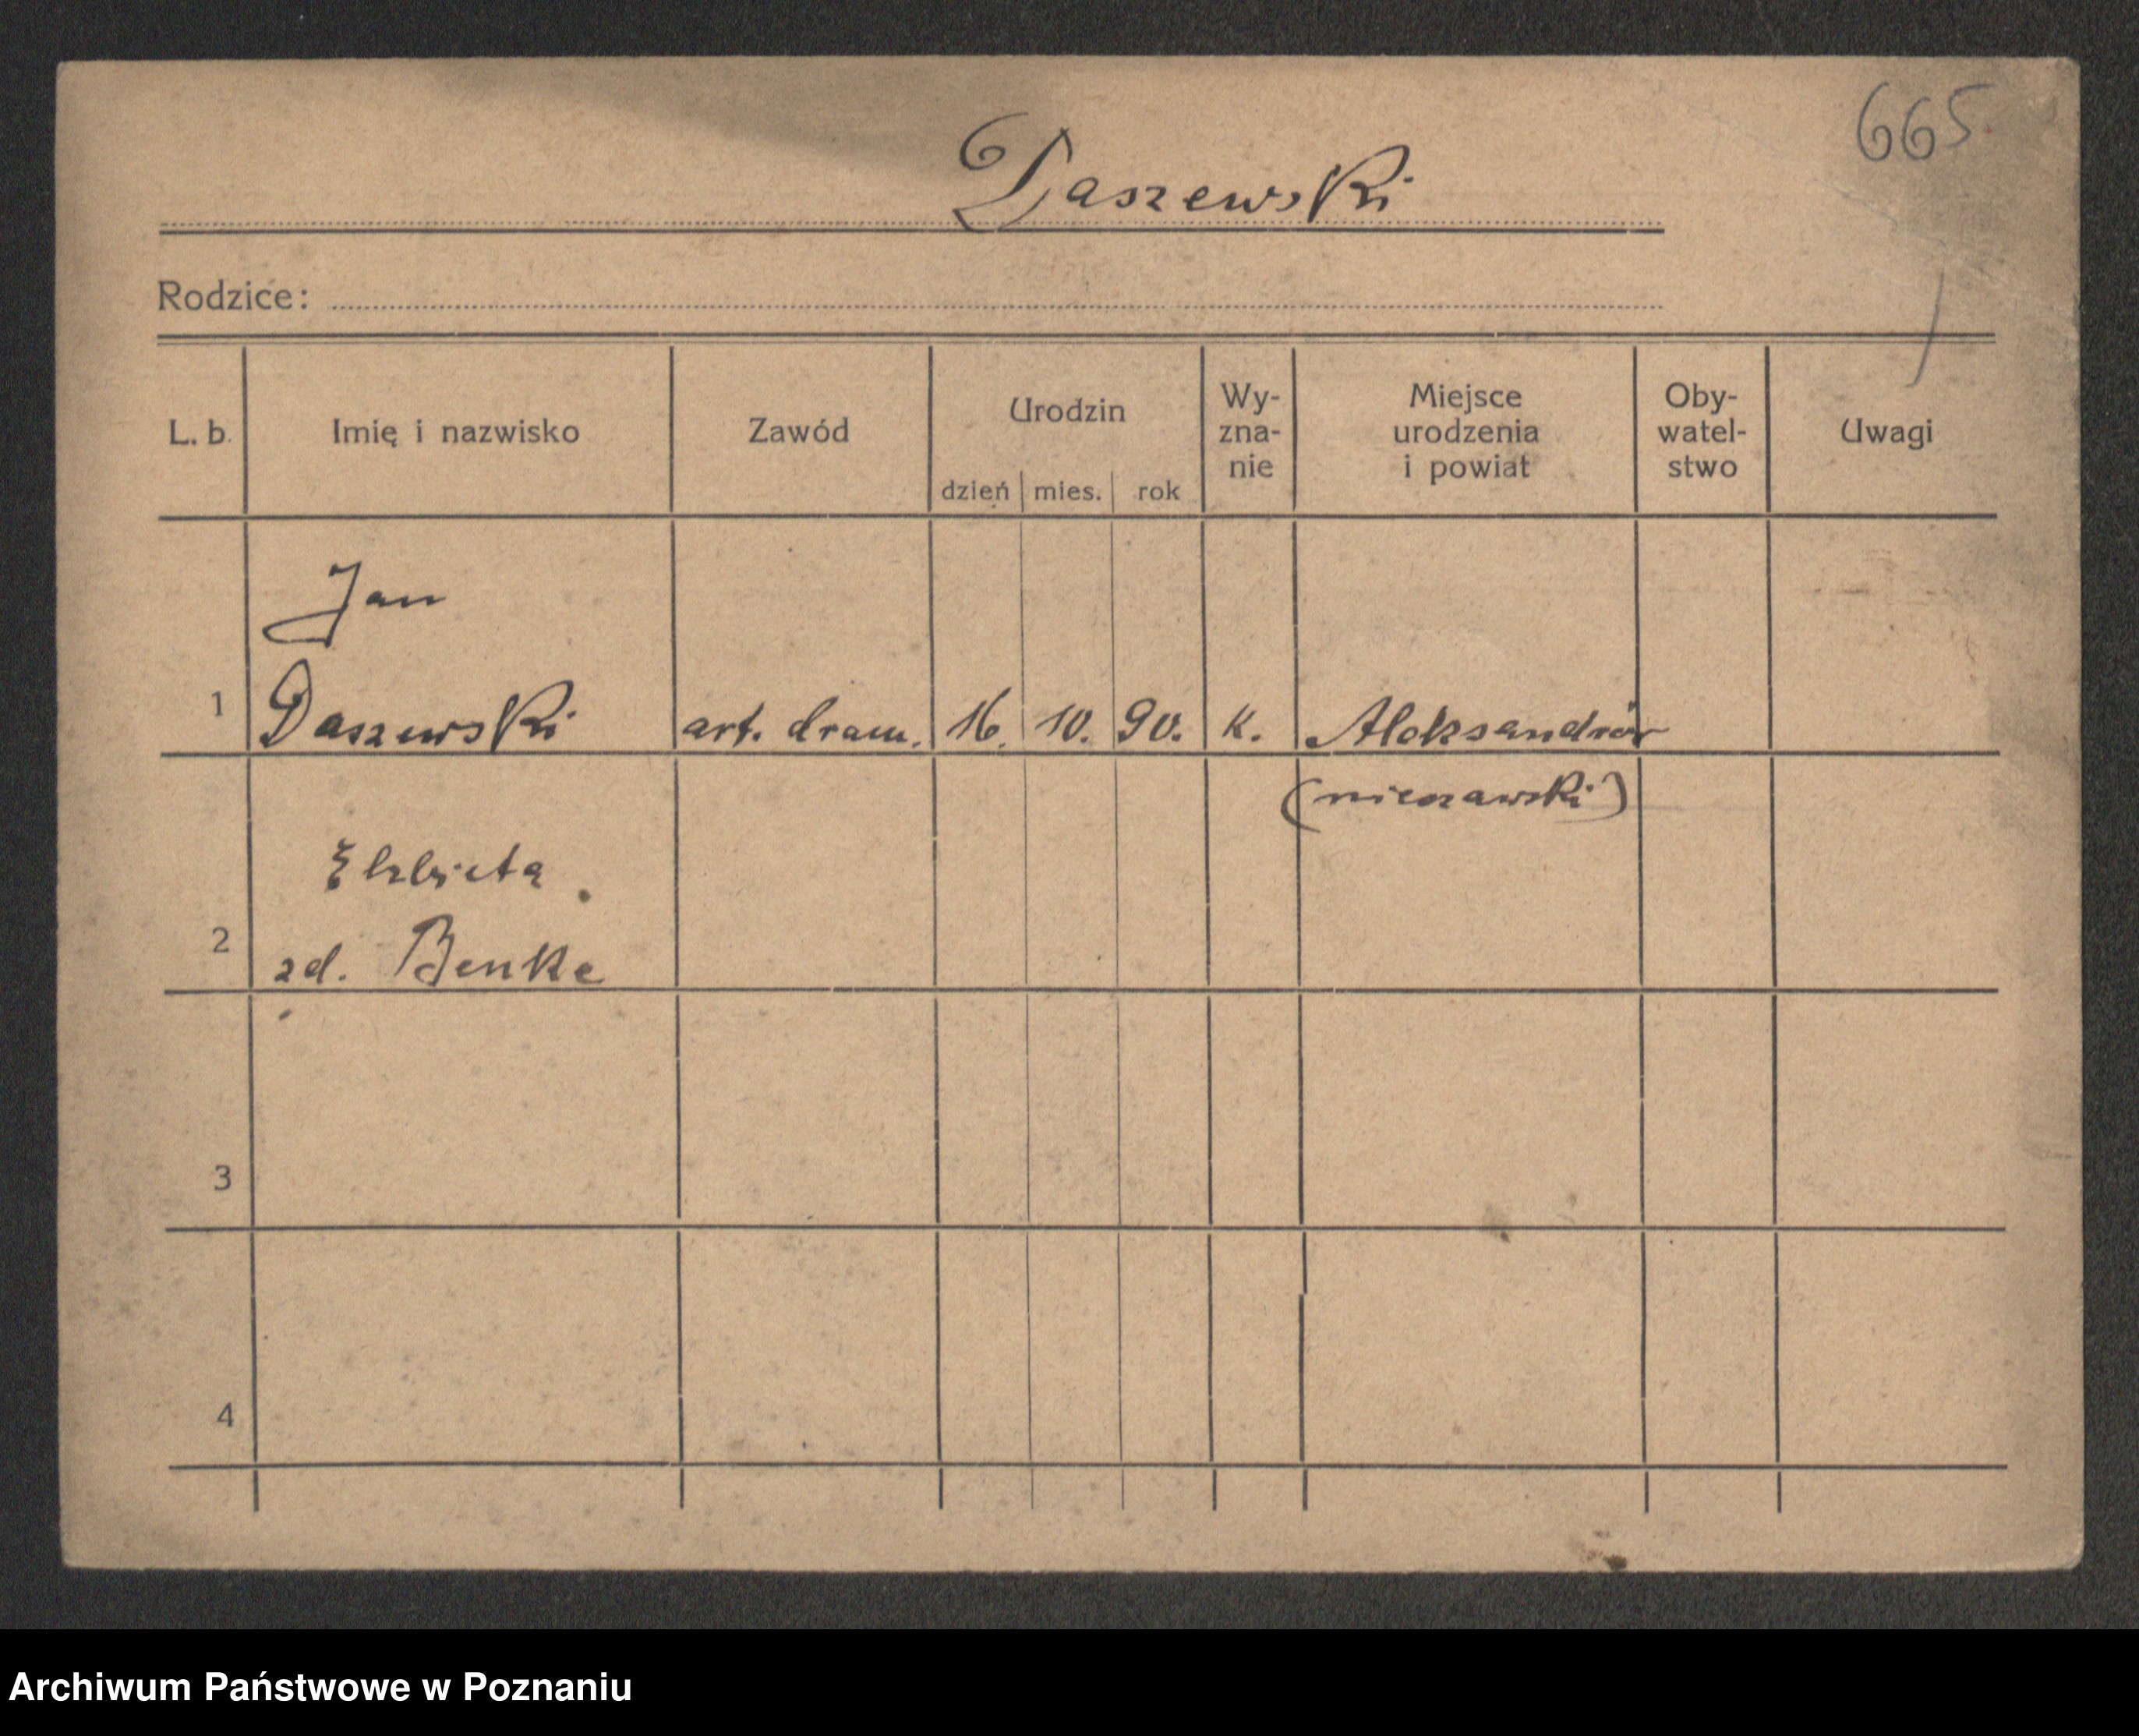 665
Daszewski
Rodzice:
L. b. Imię i nazwisko Zawód Urodzin dzień mies. rok Wy-zna-nie Miejsce urodzenia i powiat Oby-watel-stwo Uwagi
Jan
1 Daszewski art. dram. 16. 10. 90. K. Aleksandrów
(nieszawski)
Elzbieta
2 zd. Benke
3
4
Archiwum Państwowe w Poznaniu